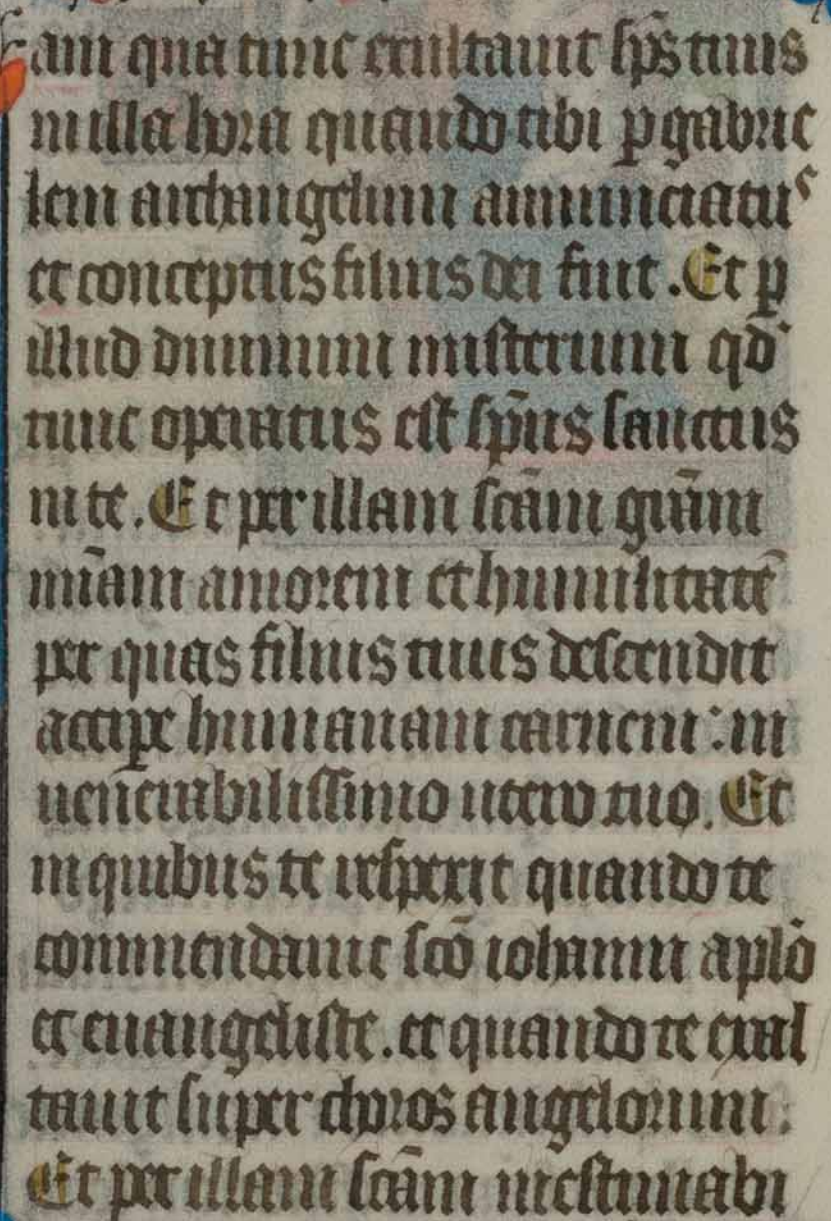 am qua tunc exultauit sp̄s tuus
in illa hora quando tibi p̱ gabrie
lem archangelum annunciatuˢ
et conceptus filius dei fuit. Et p̱
illud diuinum misterium qd̄
tunc operatus est sp̄us sanctus
in te. Et per illam sc̄am gr̄am
mīam amorem et humilitatē
per quas filius tuus descendit
accipe humanam carnem: in
uen̄erabilissimo utero tuo. Et
in quibus te respexit quando te
commendauit sc̄o iohanni apl̄o
et euangeliste. et quando te exal
tauit super choros angelorum.
Et per illam sc̄am inestimabi